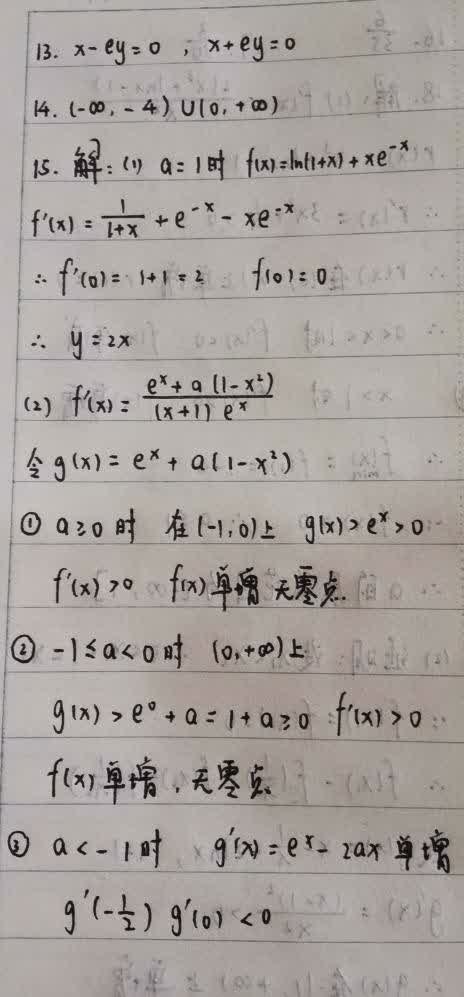 13. x-ey=0 , x+ey=0
14. (-∞, -4) ∪(0, +∞)
15. 解: (1) a=1时 f(x)=ln(1+x)+xe^{-x}
f'(x) = \frac{1}{1+x} + e^{-x} - xe^{-x}
∴ f'(0)=1+1=2 f(0)=0
∴ y=2x
(2) f'(x) = \frac{e^x+a(1-x²)}{(x+1)e^x}
令 g(x) = e^x + a(1-x²)
① a≥0 时 在(-1,0)上 g(x)>e^x>0
f'(x)>0 f(x)单增 无零点.
② -1≤a<0时 (0,+∞)上
g(x)>e^0+a=1+a≥0 f'(x)>0
f(x)单增, 无零点.
③ a<-1时 g'(x)=e^x-2ax 单增
g'(-\frac{1}{2}) g'(0) <0